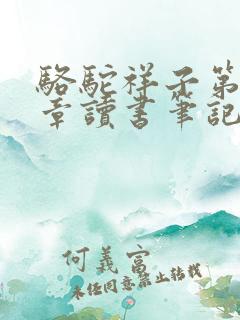 駱駝祥子第
章讀書筆記
何義富
未經同意禁止轉載